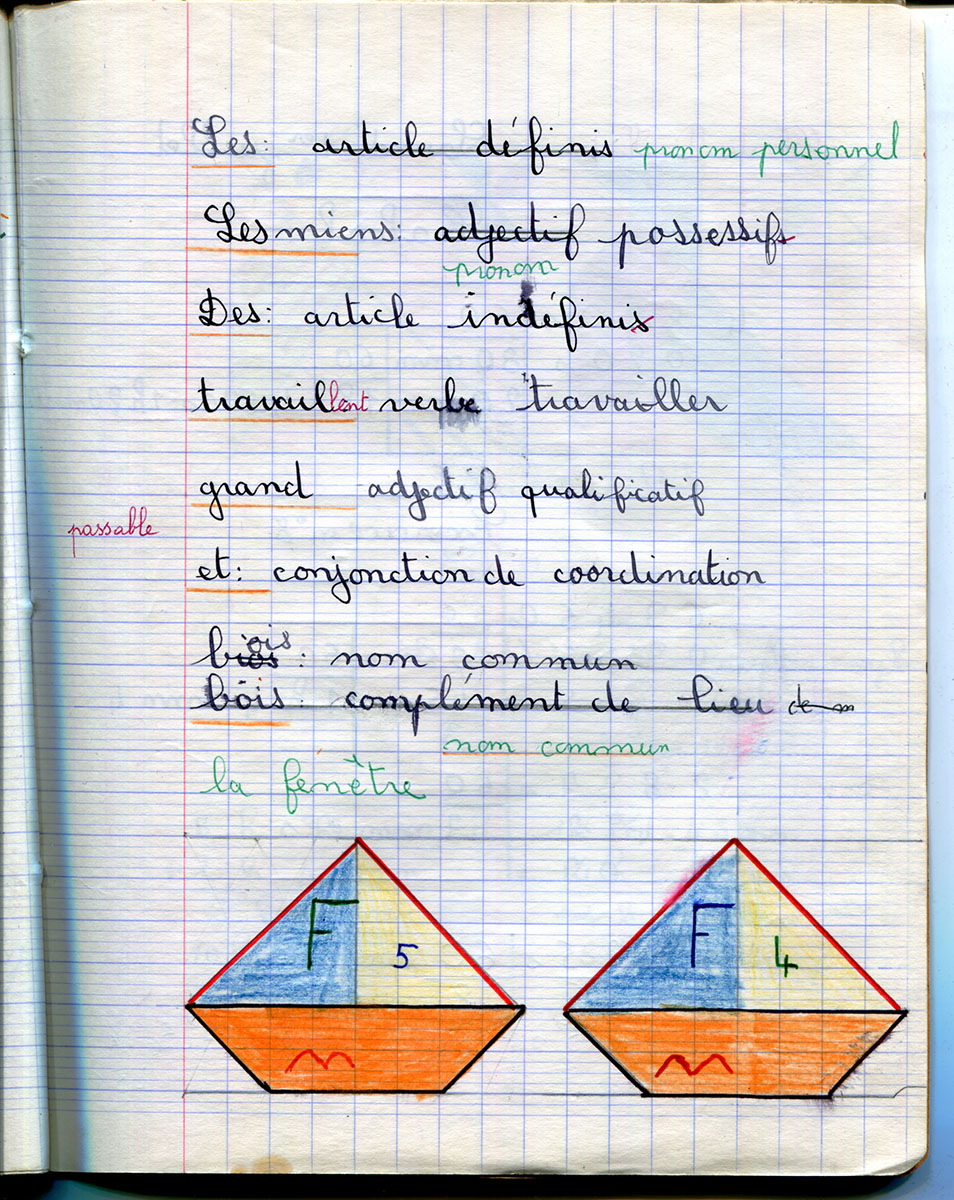 Les: article définis pronom personnel
Les miens: adjectif possessifs
pronom
Des: article indéfinis
travaillent verbe travailler
grand adjectif qualificatif
passable
et: conjonction de coordination
ois
bios : nom commun
bois: complément de lieu de m
nom commun
la fenêtre
F 5 F 4
m m